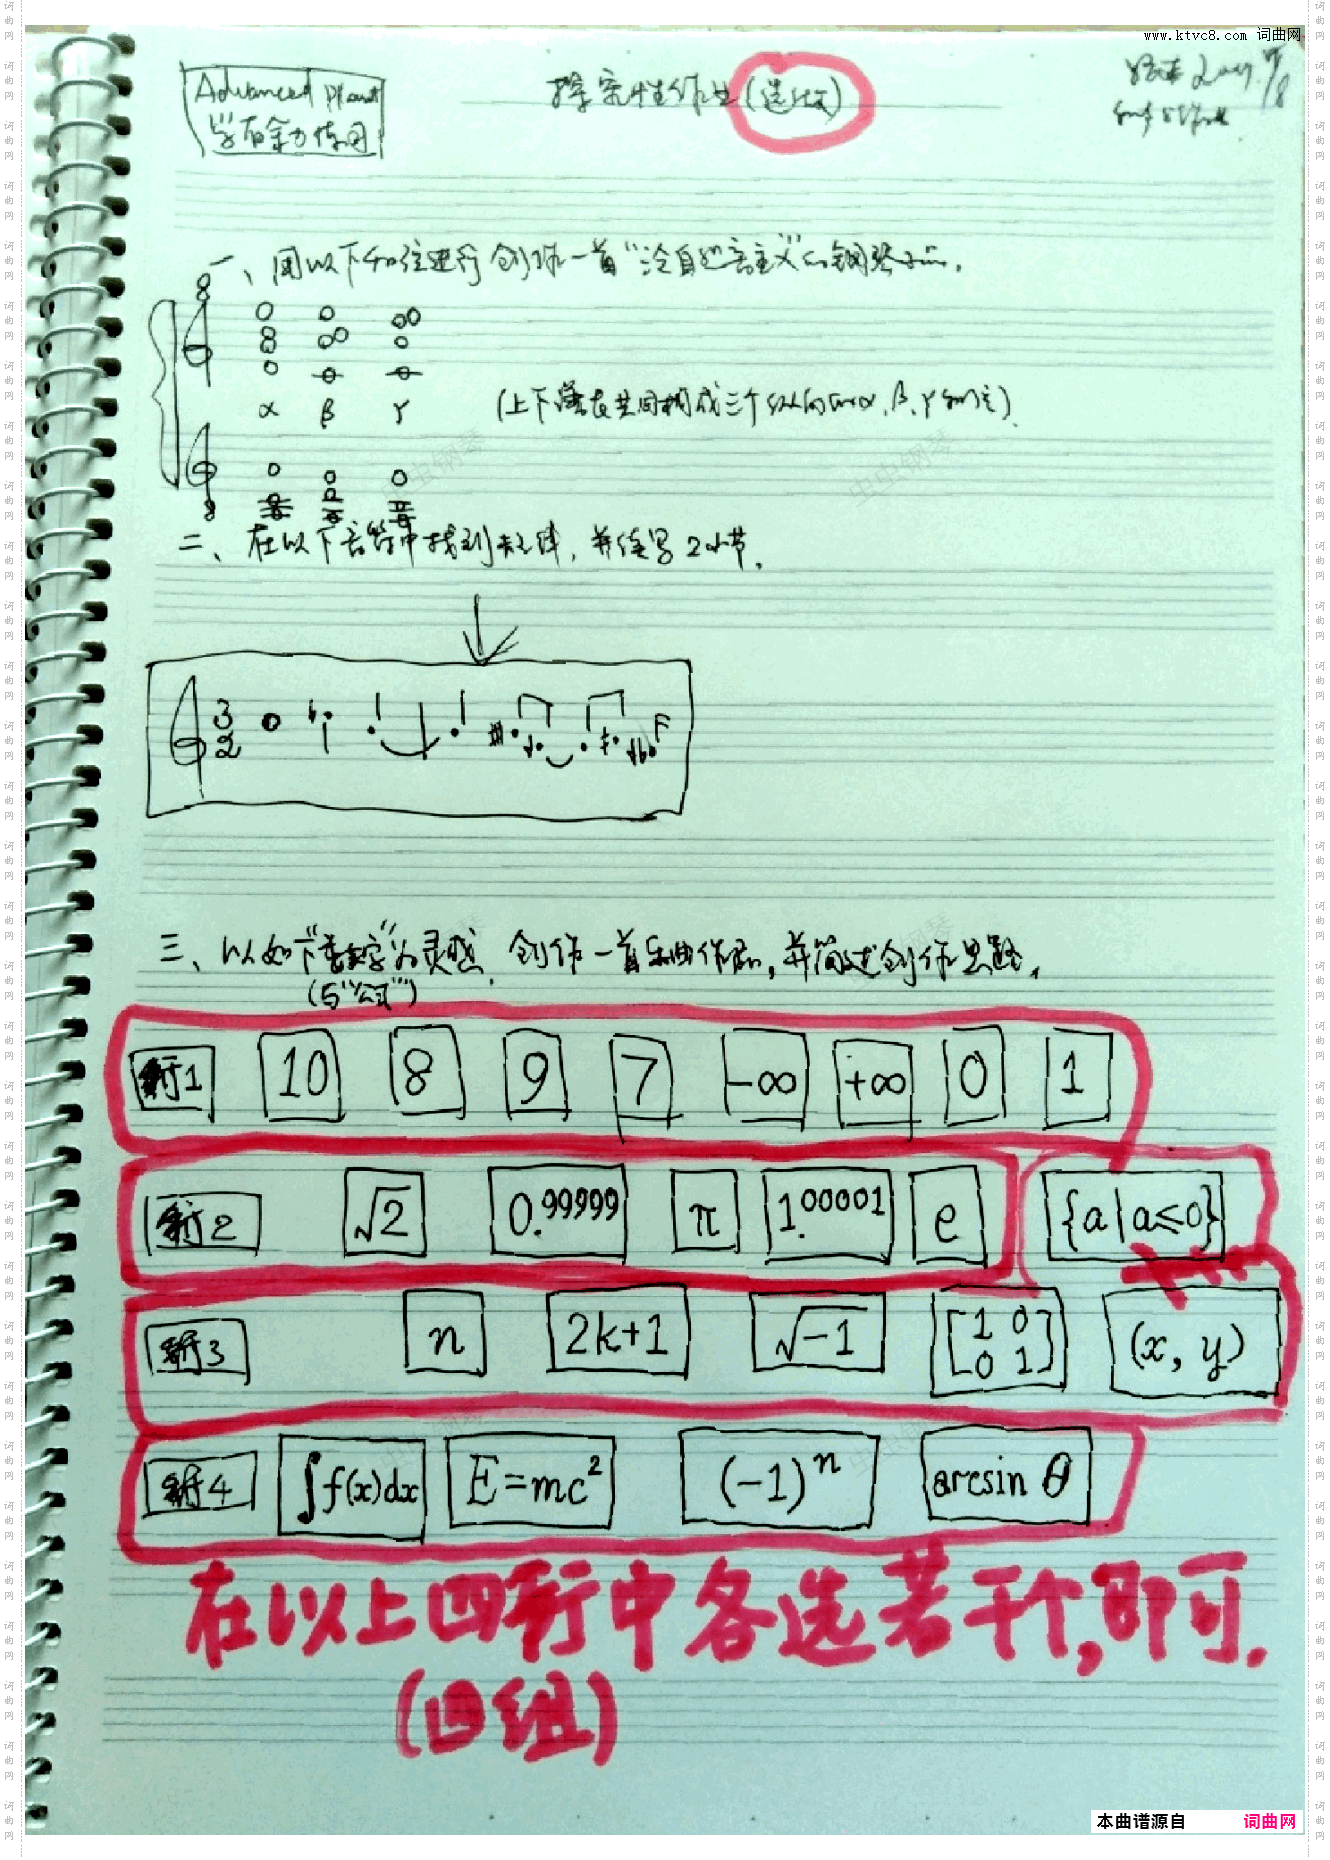 www.ktvc8.com 词曲网
Advanced
学有余力作用
探究性作业(选做)
一、用以下和弦进行创作一首“泛自然音主义”的钢琴小品.
8
α β γ
(上下谱表共同构成三个 α, β, γ 和弦)
8
二、在以下音符中找到规律,并续写2小节.
3
2
三、以如下“数字”为灵感,创作一首乐曲作品,并简述创作思路.
(与“公式”)
行1 10 8 9 7 -∞ +∞ 0 1
行2 √2 0.99999 π 1.00001 e {a|a≤0}
行3 n 2k+1 √-1 [1 0 0 1] (x, y)
行4 ∫f(x)dx E=mc² (-1)ⁿ arcsin θ
在以上四行中各选若干个,即可.
(四组)
本曲谱源自 词曲网